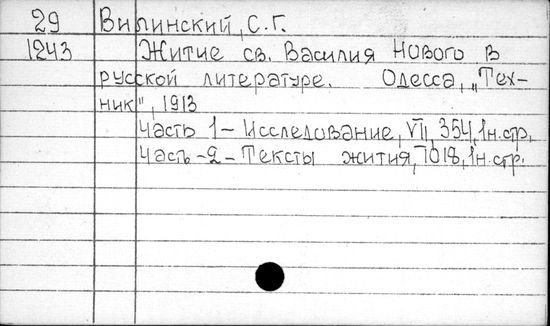 29 Вилинский, С.Г.
1243 Житие св. Василия Нового в
русской литературе. Одесса, „Тех-
ник", 1913
Часть 1 - Исследование, VII, 354, 1н.стр.
Часть-2- Тексты жития, 1018, 1н.стр.